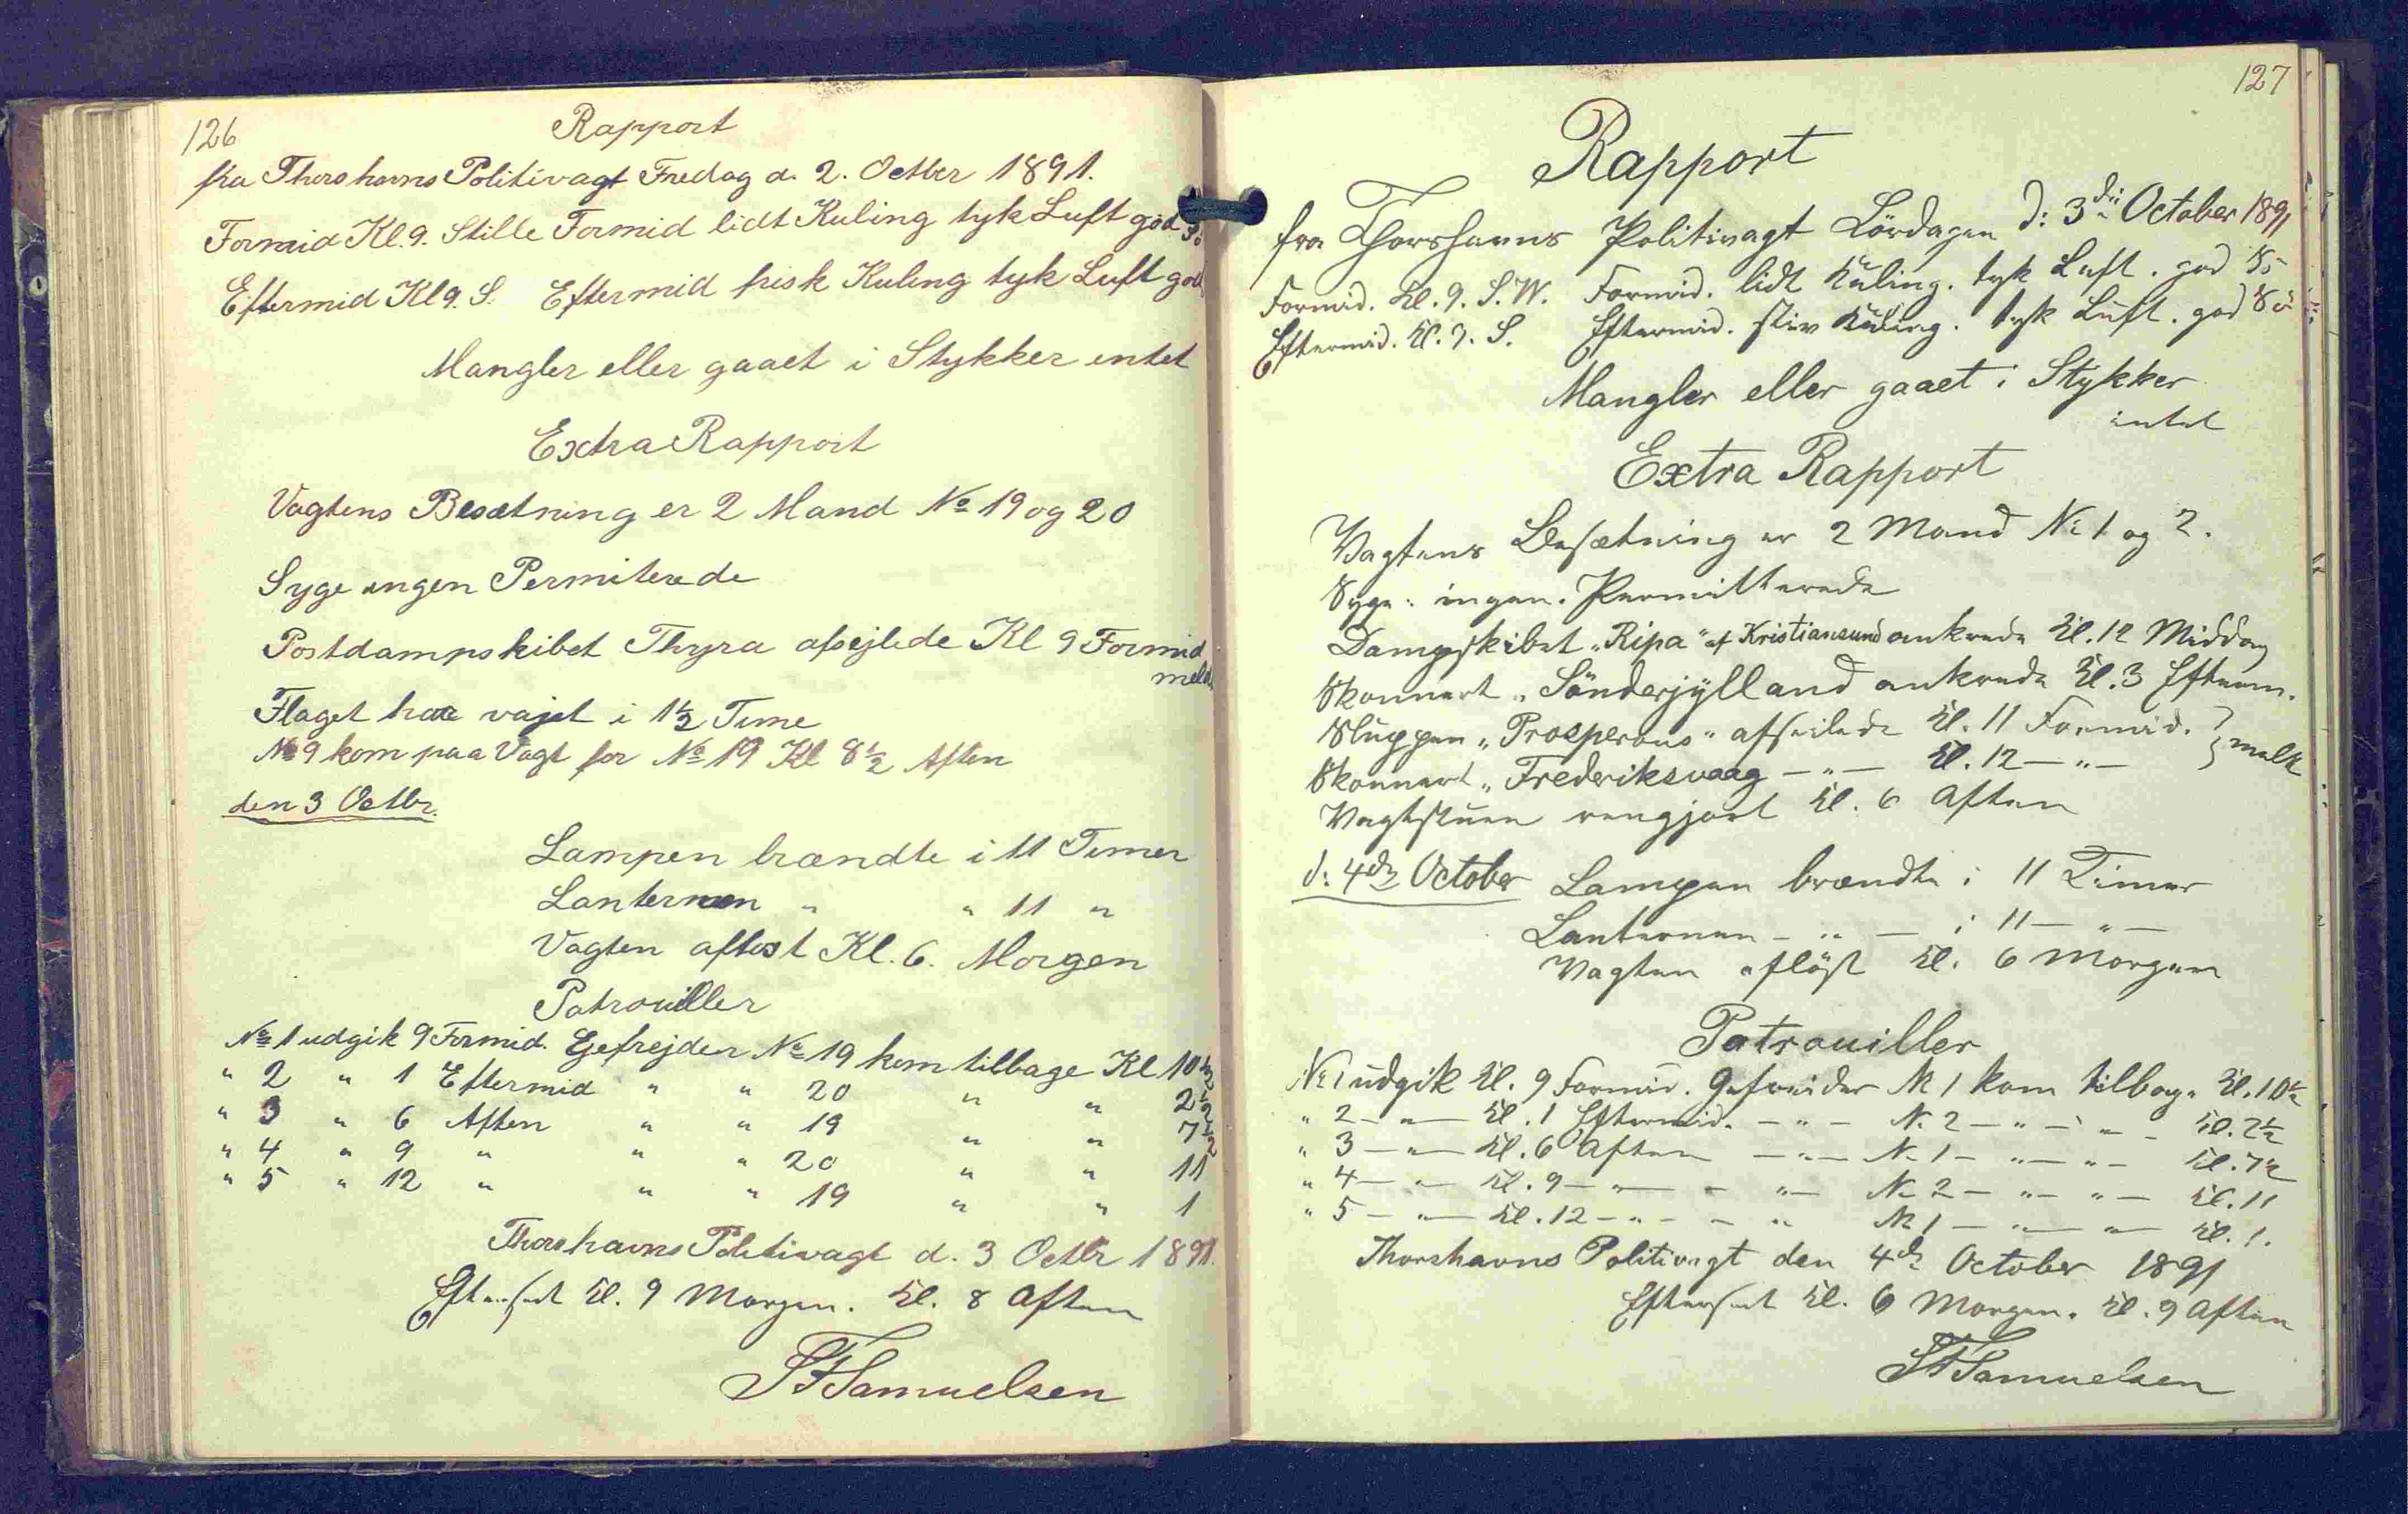 126
Rapport
fra Thorshavns Politivagt Fredag d. 2. Octber 1891.
Formid Kl. 9. Stille Formid lidt Kuling tyk Luft god Sö
Eftermid Kl 9. S. Eftermid frisk Kuling tyk Luft god
Mangler eller gaaet i Stykker intet
Extra Rapport
Vagtens Besætning er 2 Mand No 19 og 20
Syge ingen Permiterede
Postdampskibet Thyra afsejlede Kl 9 Formid
meldt
Flaget har vajet i 1½ Time
No 9 kom paa Vagt for No 19 Kl 8½ Aften
den 3 Octbr.
Lampen brændte i 11 Timer
Lanternen " " 11 "
Vagten aflöst Kl. 6. Morgen
Patrouiller
No 1 udgik 9 Formid. Gefrejder No 19 kom tilbage Kl 10½
" 2 " 1 Eftermid " " 20 " " 2½
" 3 " 6 Aften " " 19 " " 7½
" 4 " 9 " " " 20 " " 11
" 5 " 12 " " " 19 " " 1
Thorshavns Politivagt d. 3 Octbr 1891.
Efterseet Kl. 9 Morgen. Kl. 8 Aften
Samuelsen
127
Rapport
fra Thorshavns Politivagt Lördagen d: 3die October 1891
Formid. Kl. 9. S. W. Formid. lidt Kuling. tyk Luft. god Sö
Eftermid. Kl. 3. S. Eftermid. stiv Kuling. tyk Luft. god Sö
Mangler eller gaaet i Stykker
intet
Extra Rapport
Vagtens Besætning er 2 Mand No 1 og 2.
Syge: ingen. Permitterede
Dampskibet "Ripa" af Kristiansund ankrede Kl. 12 Middag
Skonnert "Sönderjylland ankrede Kl. 3 Efterm.
Sluppen "Prosperous" afseilede Kl. 11 Formid. } meldt
Skonnert "Frederiksvaag — " — Kl. 12 — " —
Vagtstuen rengjort Kl. 6 Aften
d: 4de October Lampen brændte i 11 Timer
Lanternen — " — i 11 — " —
Vagten aflöst Kl. 6 Morgen
Patrouiller
No 1 udgik Kl. 9 Formid. Gefreider No 1 kom tilbage Kl. 10½
" 2 — " — Kl. 1 Eftermid. — " — No 2 — " — " — Kl. 2½
" 3 — " — Kl. 6 Aften — " — No 1 — " — " — Kl. 7½
" 4 — " — Kl. 9 — " — — " — No 2 — " — " — Kl. 11
" 5 — " — Kl. 12 — " — — " No 1 — " — " — Kl. 1.
Thorshavns Politivagt den 4de October 1891
Efterseet Kl. 6 Morgen. Kl. 9 Aften
Samuelsen